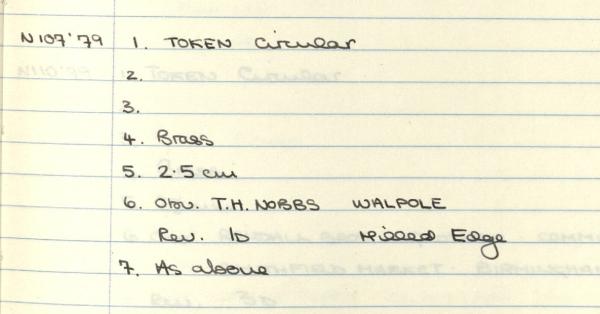 N107'79 1. TOKEN Circular
2.
3.
4. Brass
5. 2.5 cm
6. Obv. T.H. NOBBS WALPOLE
Rev. 1D Milled Edge
7. As above